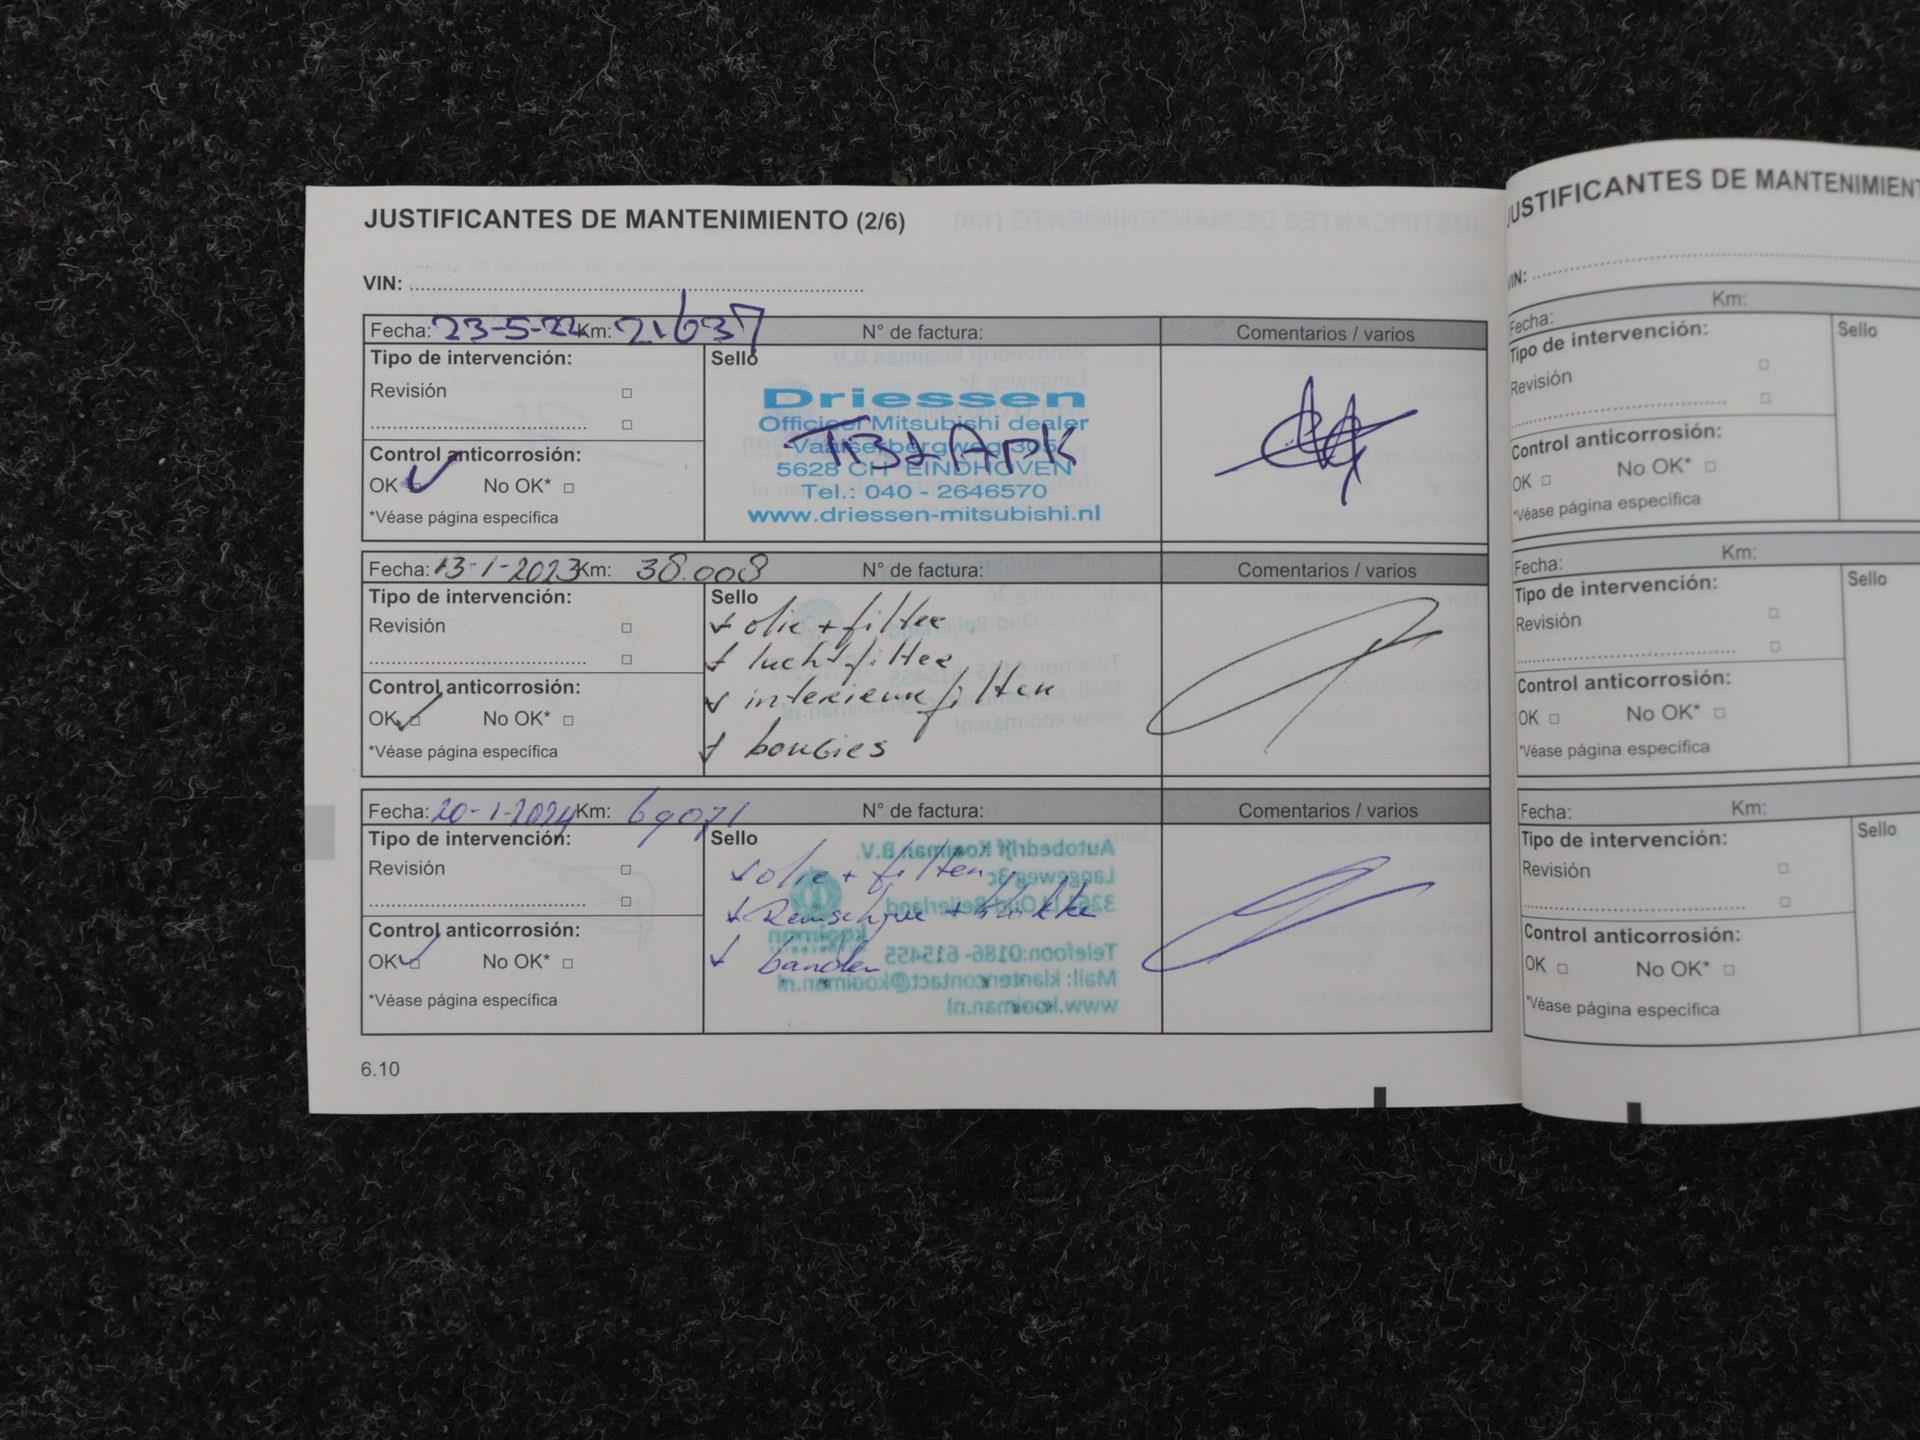 JUSTIFICANTES DE MANTENIMIENTO (2/6)
VIN:
Fecha: 23-5-22 Km: 21637 N° de factura: Comentarios / varios
Tipo de intervención:
Revisión
Sello
Driessen
Officieel Mitsubishi dealer
Vaalserbergweg 305
5628 CH EINDHOVEN
Tel.: 040 - 2646570
www.driessen-mitsubishi.nl
APK
Control anticorrosión:
OK No OK*
*Véase página específica
Fecha: 13-1-2023 Km: 38.008 N° de factura: Comentarios / varios
Tipo de intervención:
Revisión
Sello
olie + filter
luchtfilter
interieurfilter
bougies
Control anticorrosión:
OK No OK*
*Véase página específica
Fecha: 20-1-2024 Km: 69071 N° de factura: Comentarios / varios
Tipo de intervención:
Revisión
Sello
olie + filter
banden
Autobedrijf Kooiman B.V.
Langeweg 3c
Oud-Beijerland
kooiman
Telefoon: 0186- 615455
Mail: klantencontact@kooiman.nl
www.kooiman.nl
Control anticorrosión:
OK No OK*
*Véase página específica
6.10
JUSTIFICANTES DE MANTENIMIENT
VIN:
Fecha: Km:
Tipo de intervención:
Revisión
Sello
Control anticorrosión:
OK No OK*
*Véase página específica
Fecha: Km:
Tipo de intervención:
Revisión
Sello
Control anticorrosión:
OK No OK*
*Véase página específica
Fecha: Km:
Tipo de intervención:
Revisión
Sello
Control anticorrosión:
OK No OK*
*Véase página específica